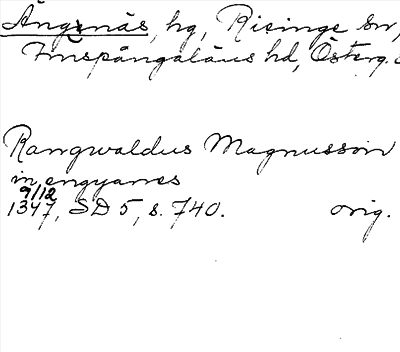 Ängsnäs, hg, Risinge sn,
Finspångaläns hd, Österg.
Rangwaldus Magnusson
in engyanes
9/12
1347, SD 5, s. 740. orig.